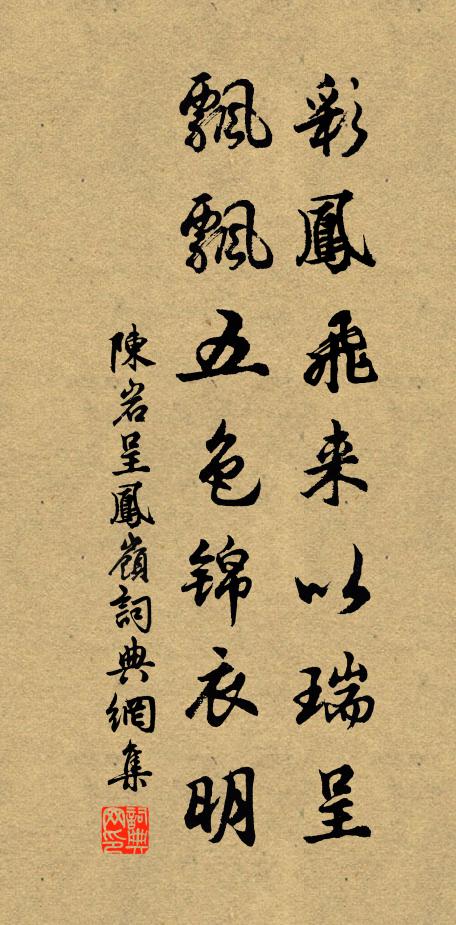 彩鳳飛来以瑞呈
飄飄五色錦衣明
陳岩呈鳳嶺詞典網集
詞典網印